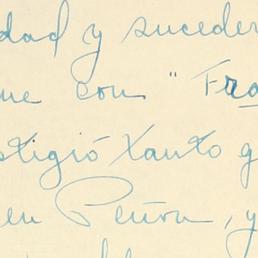 dad y suceder
ue con " Fra
stigió tanto q
en Peñon, y